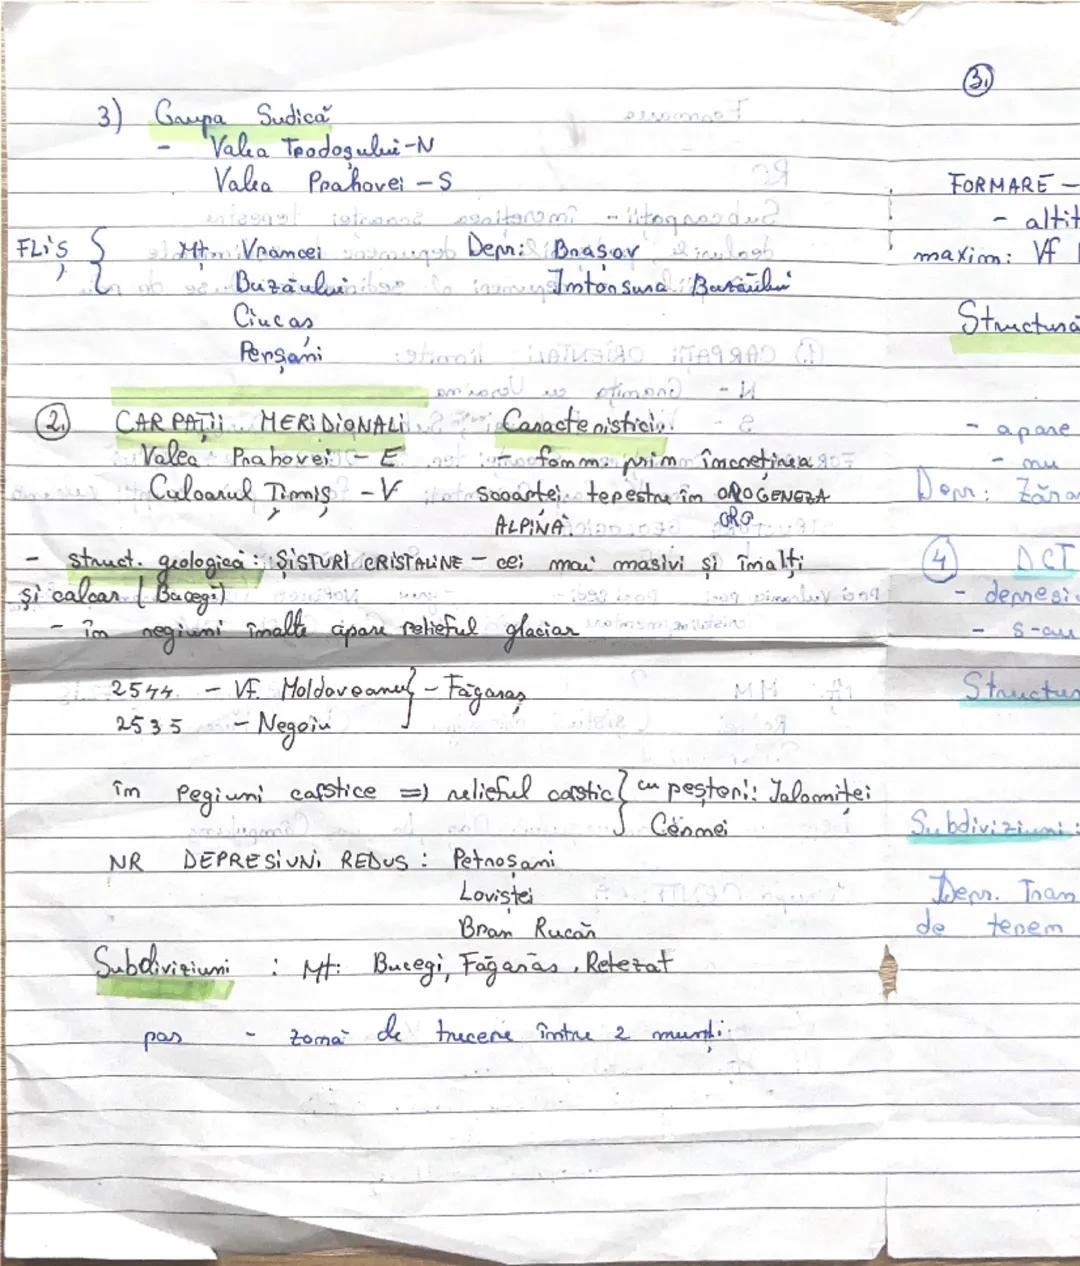 3) Grupa Sudică
- Valea Trotoșului-N
Valea Prahovei - S
FLiȘ { Mt. Vrancei Depr: Brașov
Buzăului Întorsura Buzăului
Ciucaș
Perșani
2. CARPAȚII MERIDIONALI Caracteristici:
Valea Prahovei - E - form. prin încrețirea
Culoarul Timiș - V scoarței terestre în OROGENEZA
ALPINĂ. ORO
- struct. geologică: ȘISTURI CRISTALINE - cei mai masivi și înalți
și calcar (Bucegi)
- în regiuni înalte apare relieful glaciar
2544 - Vf. Moldoveanu } - Făgăraș
2535 - Negoiu
în regiuni carstice => relieful carstic } cu peșteri: Ialomiței
Cernei
NR DEPRESiUNi REDUS: Petroșani
Loviștei
Bran Rucăr
Subdiviziuni : Mt: Bucegi, Făgăraș, Retezat
pas - zonă de trecere între 2 munți.
3.
FORMARE -
- altit
maxim: Vf
Structura
- apare
- nu
Depr: Zăra
4 DCT
- depresi
- s-au
Structur
Subdiviziuni:
Depr. Tran
de terem